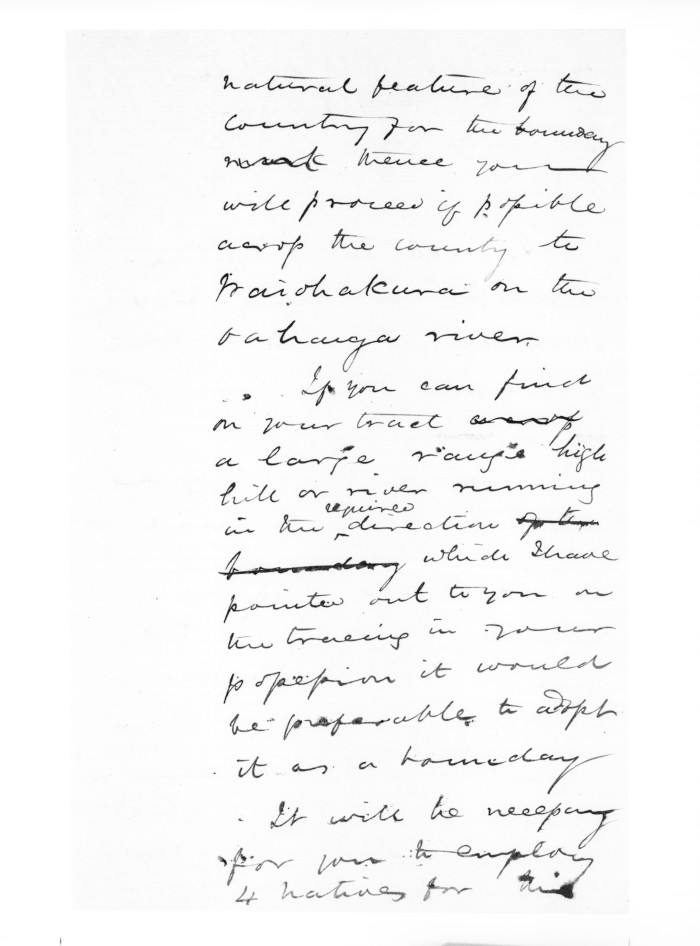 natural feature of the
country for the bounday
mark thence you
will proceed if possible
across the county to
Waiohakura on the
tahanga river.
If you can find
on your tract across
a large range high
hill or river running
in the required direction of the
boundary which I have
pointed out to you on
the tracing in your
possession it would
be preferable to adopt
it as a bounday
It will be necessary
for you to employ
4 natives for this